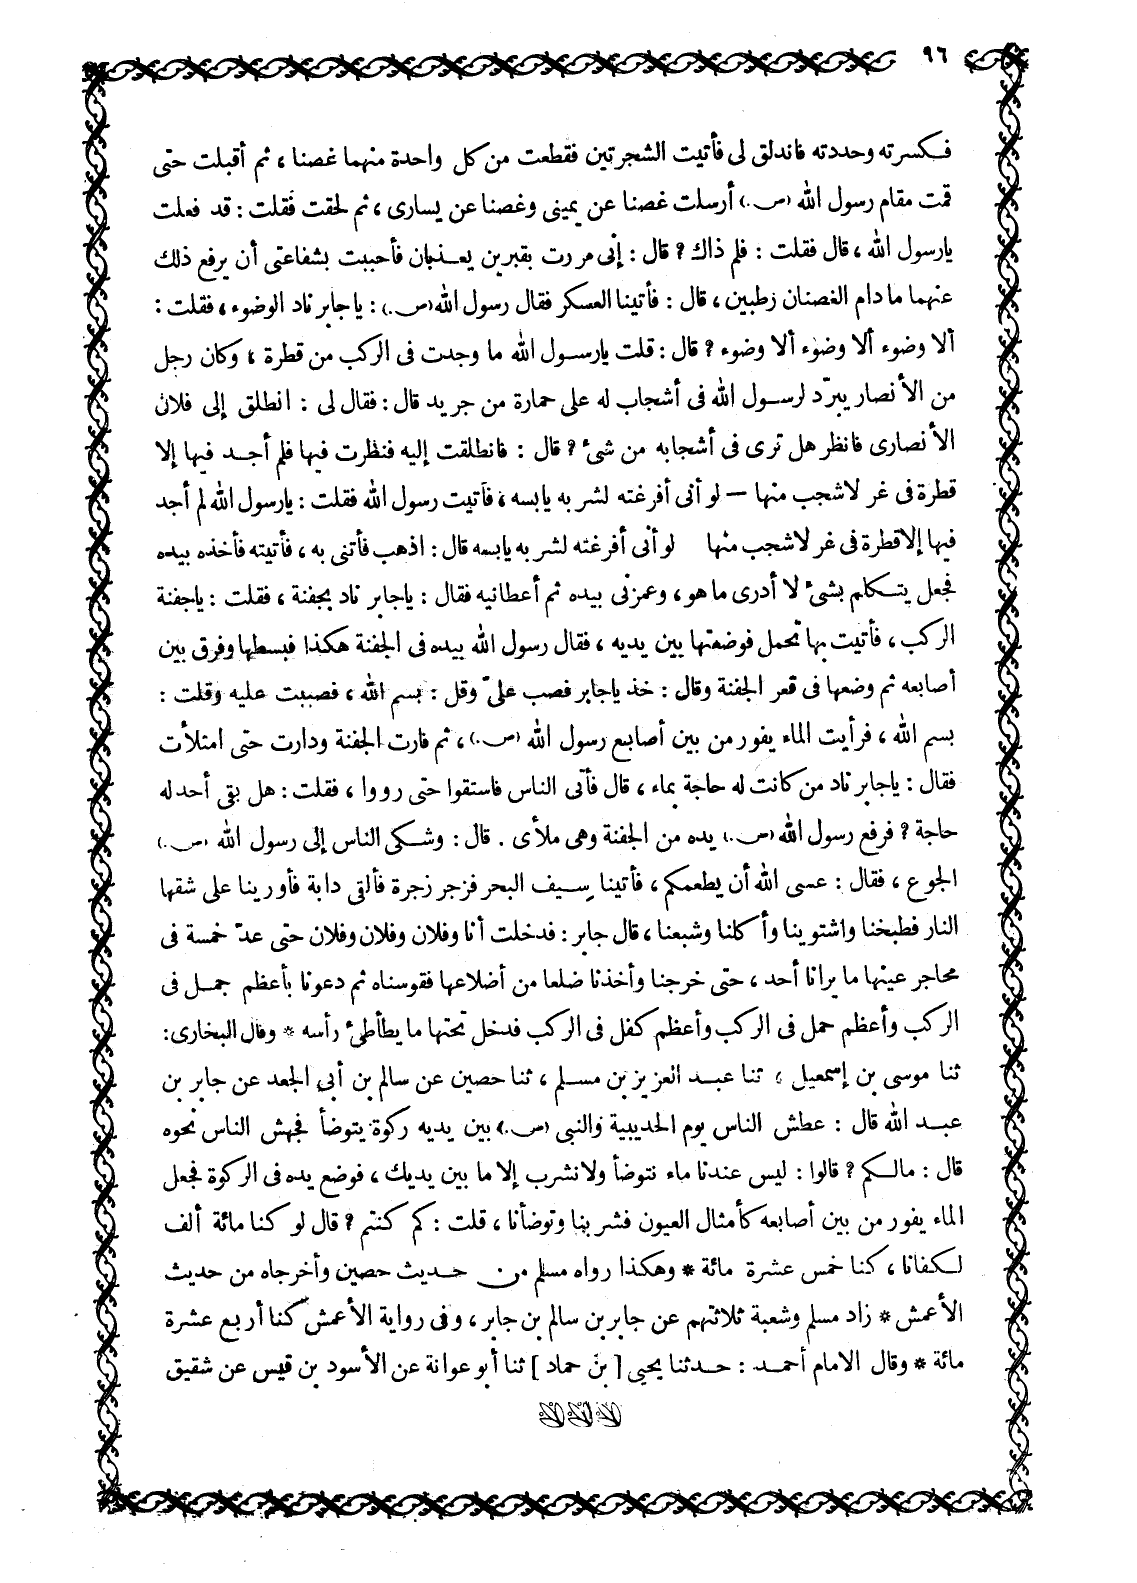 ٩٦
فكسرته وحددته فاندلق لى فأتيت الشجرتين فقطعت من كل واحدة منهما غصنا ، ثم أقبلت حتى
قمت مقام رسول الله (ص.) أرسلت غصنا عن يمينى وغصنا عن يسارى ، ثم لحقت فقلت : قد فعلت
يارسول الله ، قال فقلت : فلم ذاك ? قال : إنى مررت بقبرين يعذبان فأحببت بشفاعتى أن يرفع ذلك
عنهما ما دام الغصنان رطبين ، قال : فأتينا العسكر فقال رسول الله (ص.) : ياجابر ناد الوضوء ، فقلت :
ألا وضوء ألا وضوء ألا وضوء ? قال : قلت يارسول الله ما وجدت فى الركب من قطرة ، وكان رجل
من الأنصار يبرّد لرسول الله فى أشجاب له على حمارة من جريد قال : فقال لى : انطلق إلى فلان
الأنصارى فانظر هل ترى فى أشجابه من شئ ? قال : فانطلقت إليه فنظرت فيها فلم أجد فيها إلا
قطرة فى غر لاشجب منها — لو أنى أفرغته لشربه يابسه ، فأتيت رسول الله فقلت : يارسول الله لم أجد
فيها إلا قطرة فى غر لاشجب منها لو أنى أفرغته لشربه يابسه قال : اذهب فأتنى به ، فأتيته فأخذه بيده
فجعل يتكلم بشئ لا أدرى ما هو ، وغمزنى بيده ثم أعطانيه فقال : ياجابر ناد بجفنة ، فقلت : ياجفنة
الركب ، فأتيت بها تحمل فوضعتها بين يديه ، فقال رسول الله بيده فى الجفنة هكذا فبسطها وفرق بين
أصابعه ثم وضعها فى قعر الجفنة وقال : خذ ياجابر فصب علىّ وقل : بسم الله ، فصببت عليه وقلت :
بسم الله ، فرأيت الماء يفور من بين أصابع رسول الله (ص.) ، ثم فارت الجفنة ودارت حتى امتلأت
فقال : ياجابر ناد من كانت له حاجة بماء ، قال فأتى الناس فاستقوا حتى رووا ، فقلت : هل بقى أحد له
حاجة ? فرفع رسول الله (ص.) يده من الجفنة وهى ملأى . قال : وشكى الناس إلى رسول الله (ص.)
الجوع ، فقال : عسى الله أن يطعمكم ، فأتينا سيف البحر فزجر زجرة فألقى دابة فأورينا على شقها
النار فطبخنا واشتوينا وأكلنا وشبعنا ، قال جابر : فدخلت أنا وفلان وفلان وفلان حتى عدّ خمسة فى
محاجر عينها ما يرانا أحد ، حتى خرجنا وأخذنا ضلعا من أضلاعها فقوسناه ثم دعونا بأعظم جمل فى
الركب وأعظم حمل فى الركب وأعظم كفل فى الركب فدخل تحتها ما يطأطئ رأسه * وقال البخارى :
ثنا موسى بن إسمعيل ، ثنا عبد العزيز بن مسلم ، ثنا حصين عن سالم بن أبى الجعد عن جابر بن
عبد الله قال : عطش الناس يوم الحديبية والنبى (ص.) بين يديه ركوة يتوضأ فجهش الناس نحوه
قال : مالكم ? قالوا : ليس عندنا ماء نتوضأ ولا نشرب إلا ما بين يديك ، فوضع يده فى الركوة فجعل
الماء يفور من بين أصابعه كأمثال العيون فشربنا وتوضأنا ، قلت : كم كنتم ? قال لو كنا مائة ألف
لكفانا ، كنا خمس عشرة مائة * وهكذا رواه مسلم من حديث حصين وأخرجاه من حديث
الأعمش * زاد مسلم وشعبة ثلاثتهم عن جابر بن سالم بن جابر ، وفى رواية الأعمش كنا أربع عشرة
مائة * وقال الامام أحمد : حدثنا يحيى [ بن حماد ] ثنا أبو عوانة عن الأسود بن قيس عن شقيق